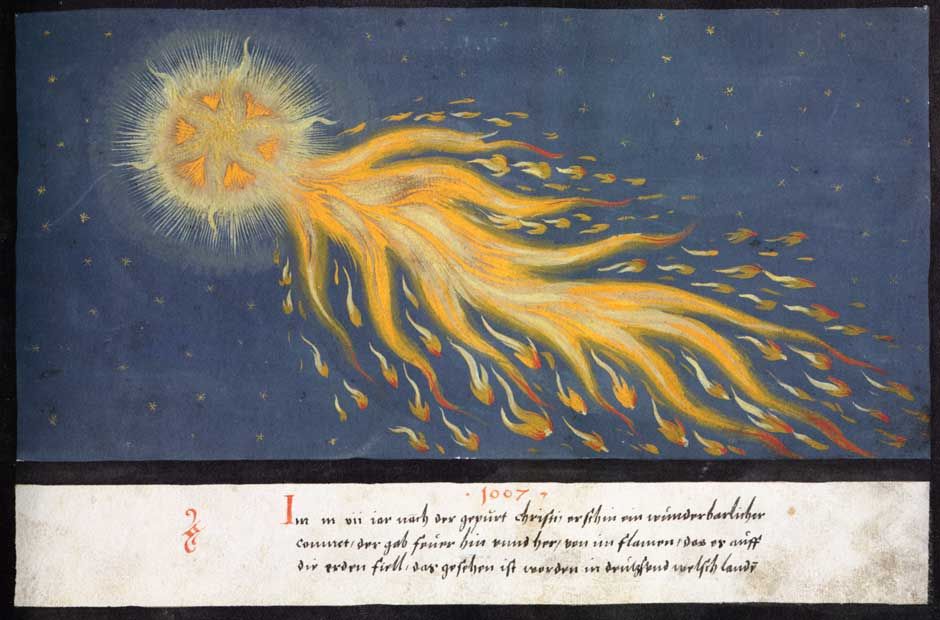 · 1007 ·
Im m vii iar nach der gepurt Christi erschin ein wunderbarlicher
commet / der gab feuer hin vnnd her / von im flamen / das es auff
die erden fiell / das gesehen ist worden in deutsch vnd welsch landt